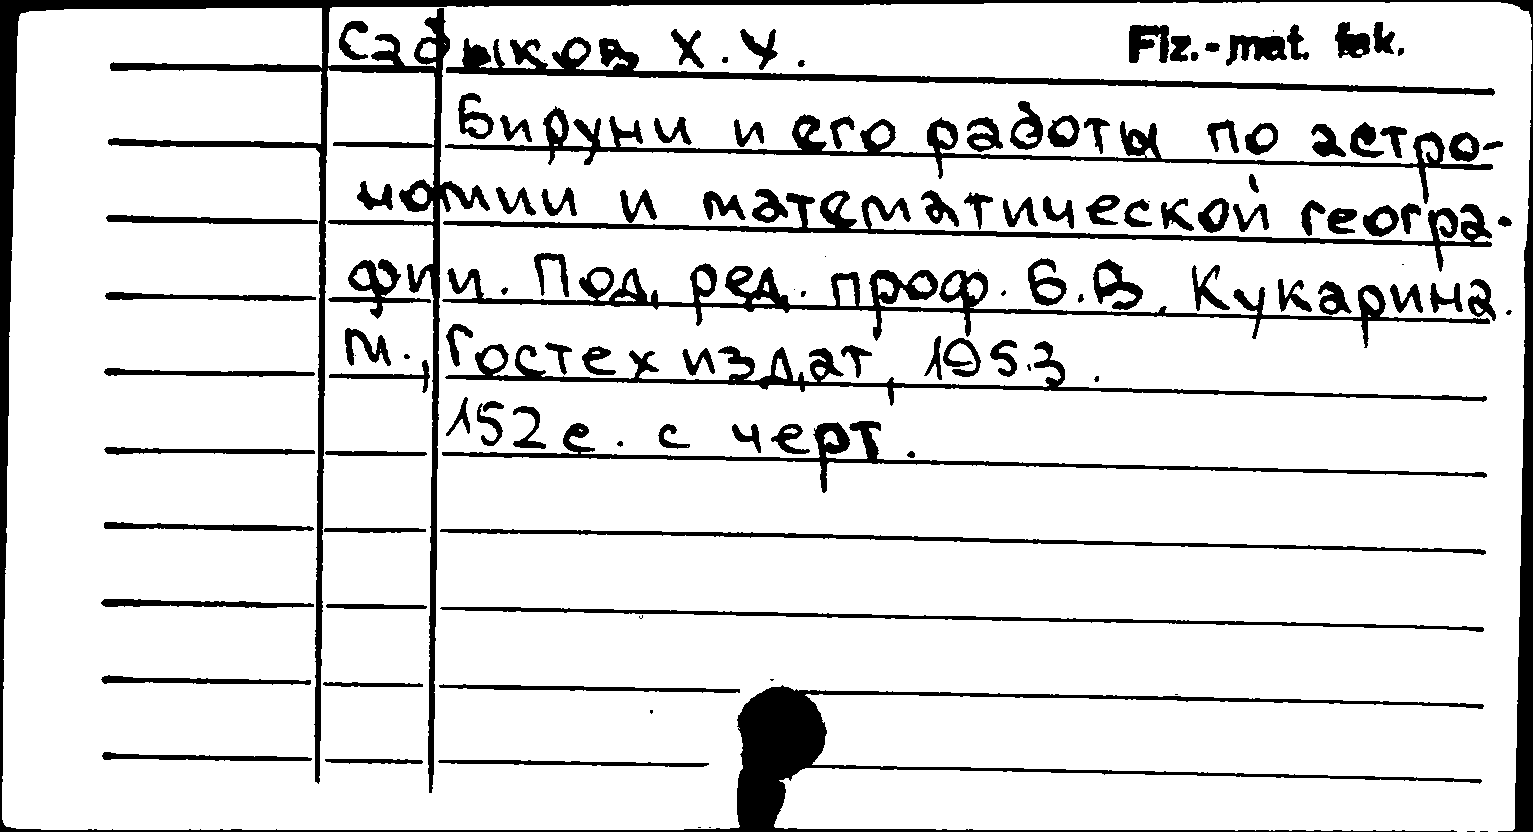 Садыков Х. У. Fiz.-mat. fak.
Бируни и его работы по астро-
номии и математической геогра-
фии. Под. ред. проф. Б.В. Кукарина.
М., Гостехиздат, 1953.
152 с. с черт.